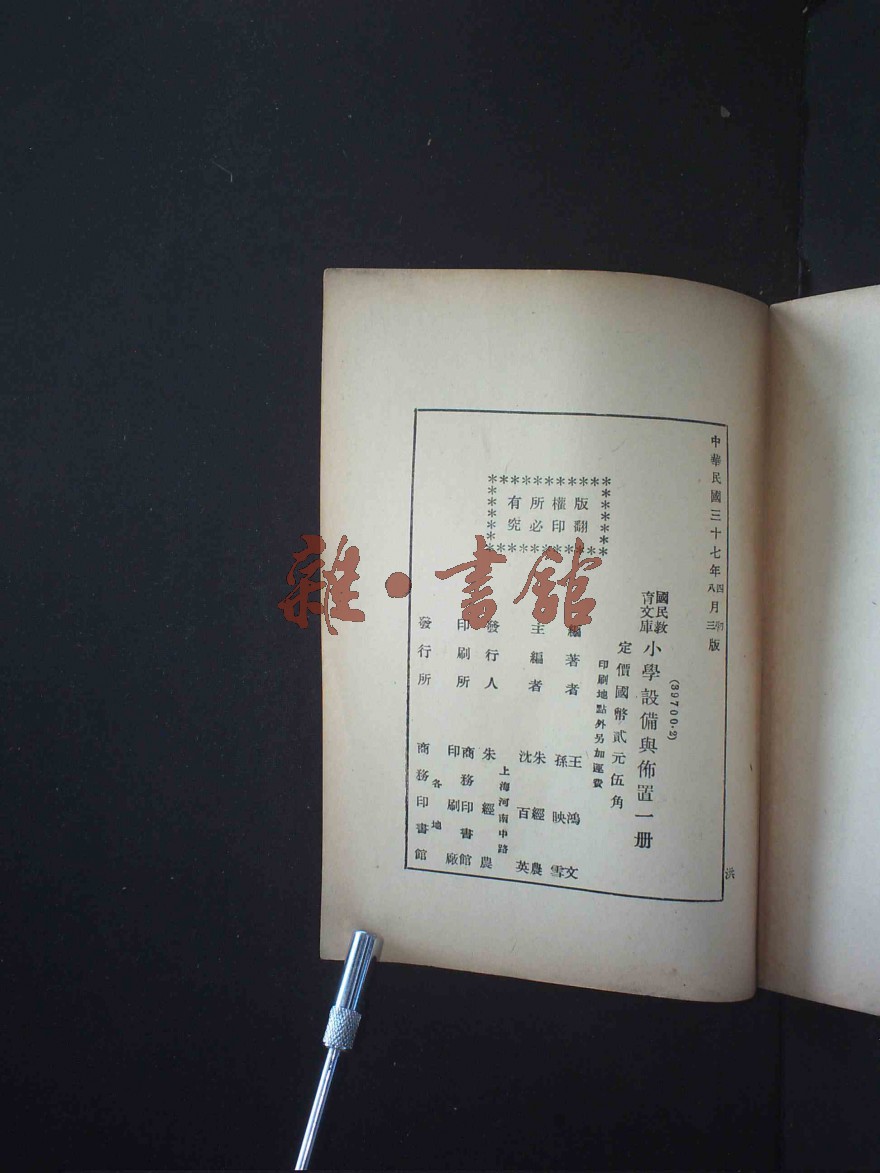 中華民國三十七年四月初版
八月三版
(39700·2)
國民教育文庫
小學設備與佈置一册
定價國幣貳元伍角
印刷地點外另加運費
版權所有
翻印必究
編著者 王鴻文 孫映雪
主編者 朱經農 沈百英
發行人 朱經農
上海河南中路
印刷所 商務印書館印刷廠
發行所 各地商務印書館
洪
雜·書館